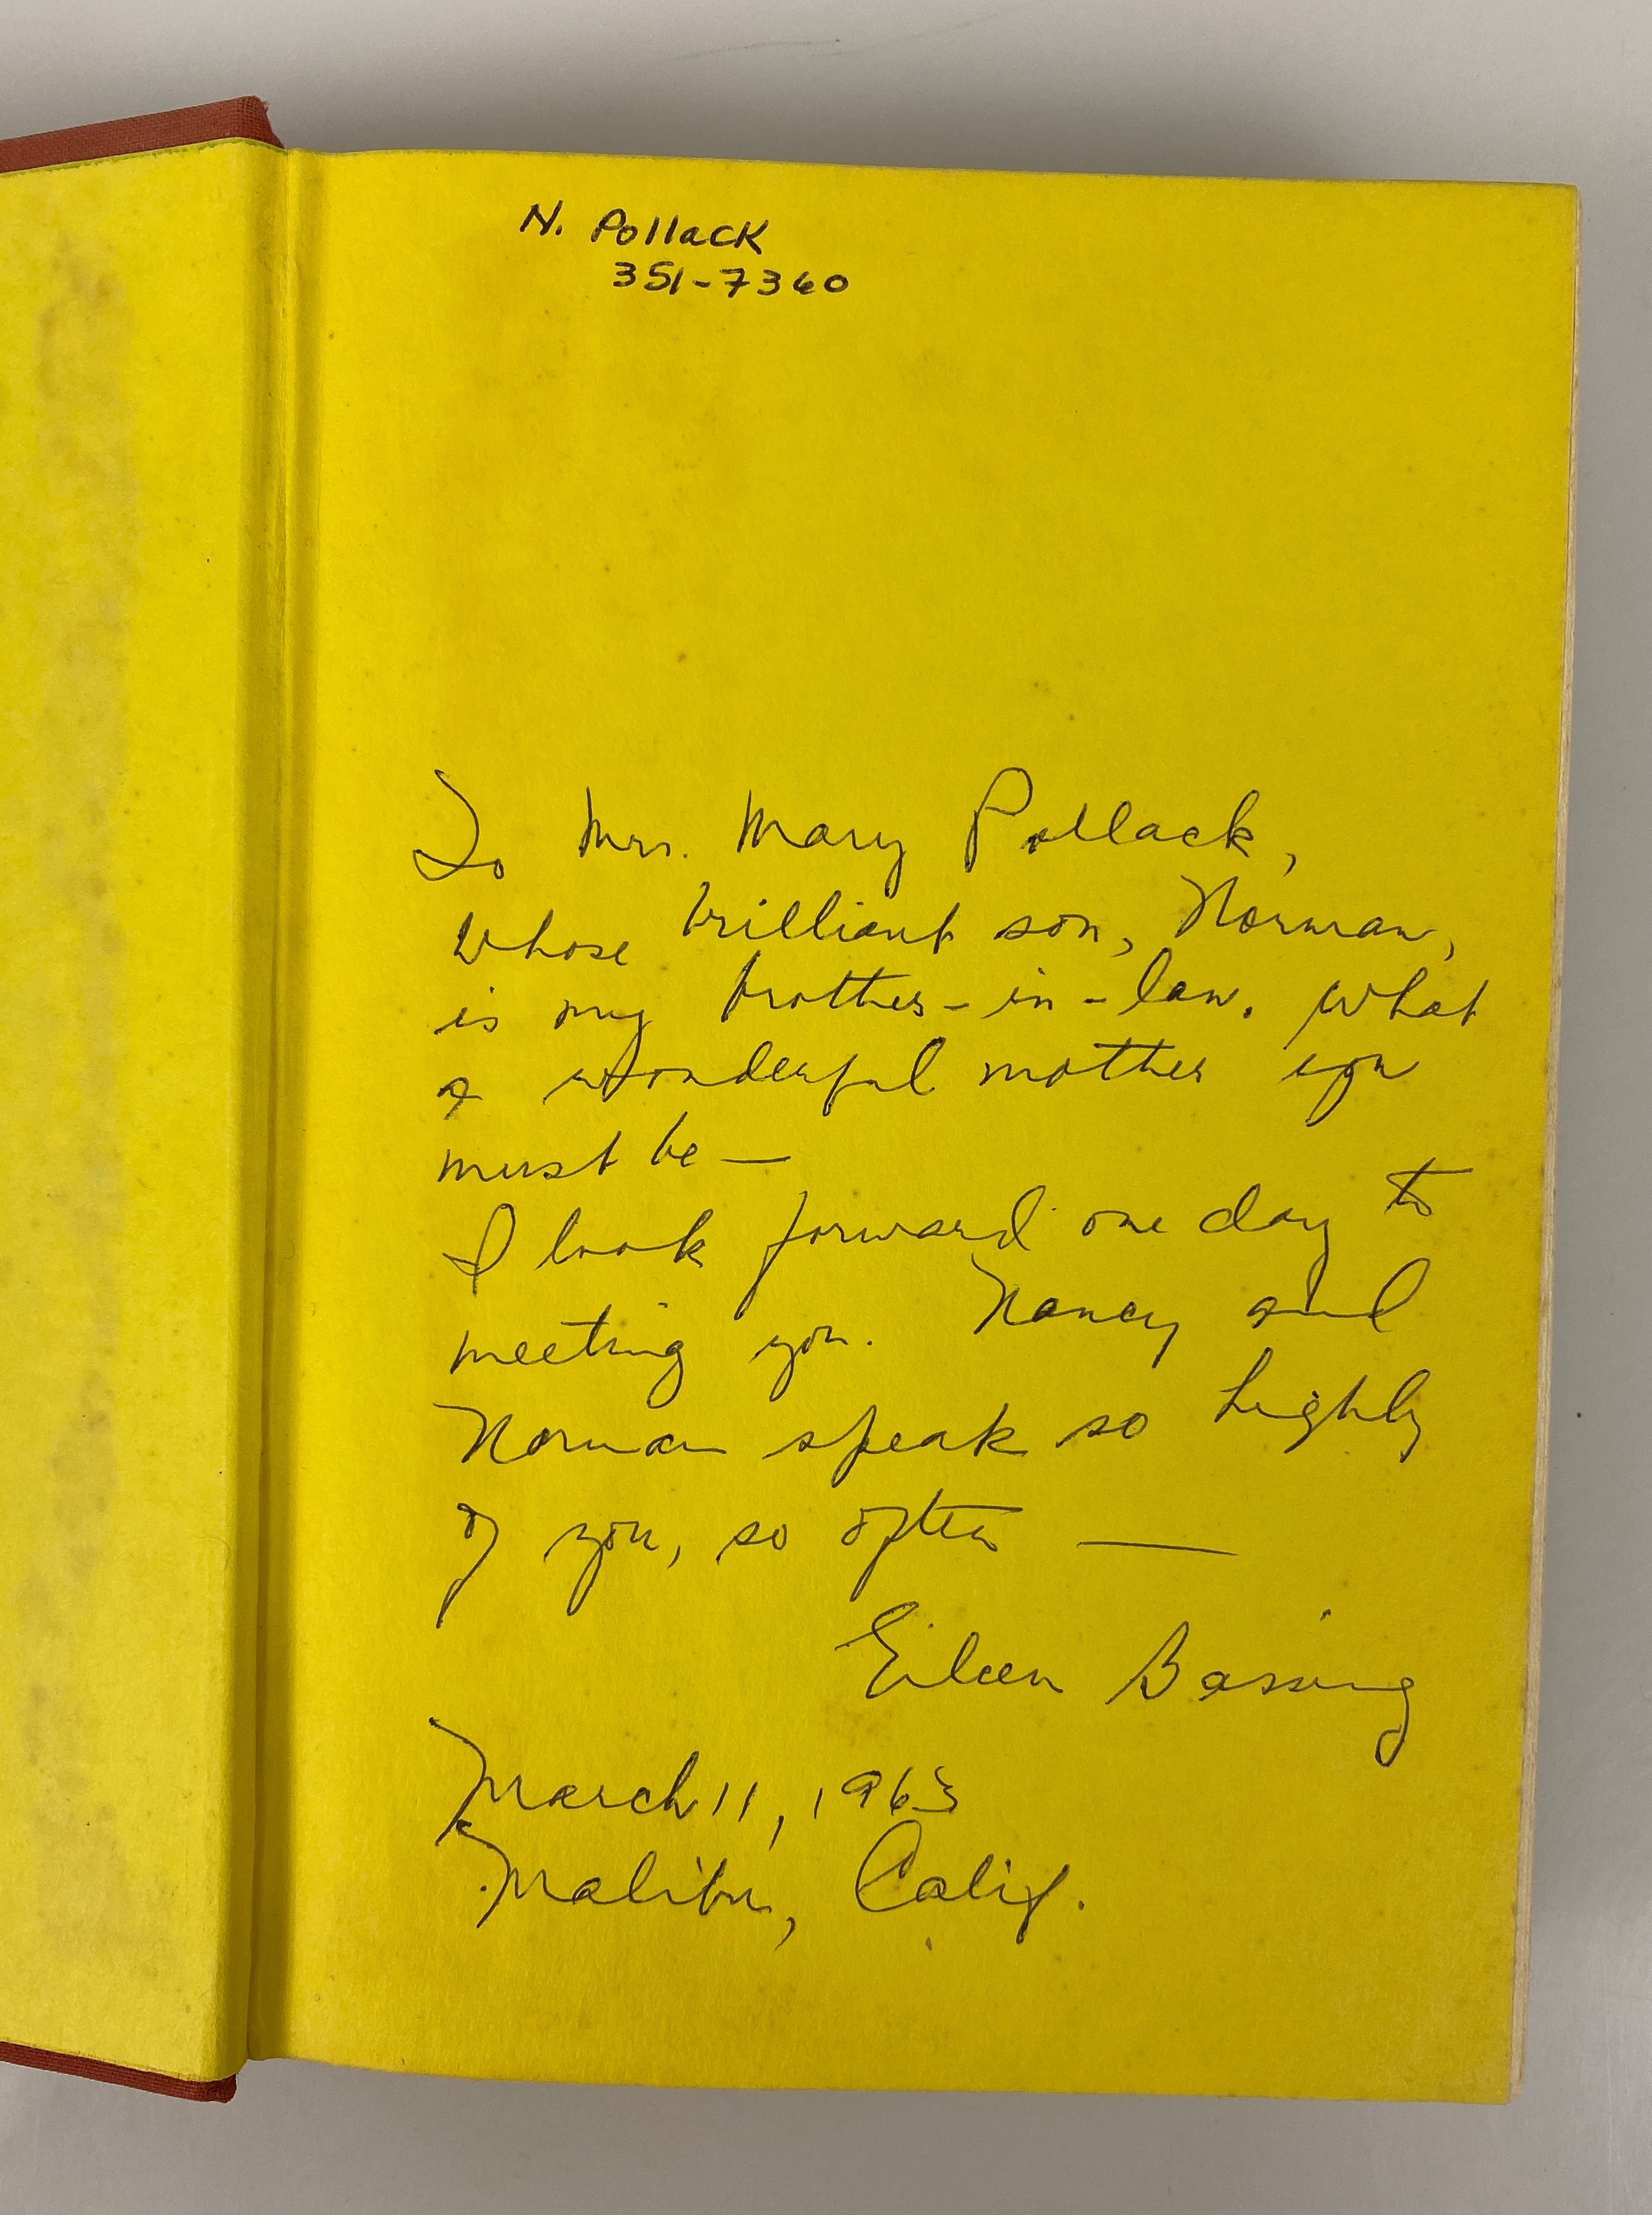 N. Pollack
351-7360
To Mrs. Mary Pollack,
whose brilliant son, Norman,
is my brother-in-law. What
a wonderful mother you
must be —
I look forward one day to
meeting you. Nancy and
Norman speak so highly
of you, so often —
Eileen Bassing
March 11, 1963
Malibu, Calif.